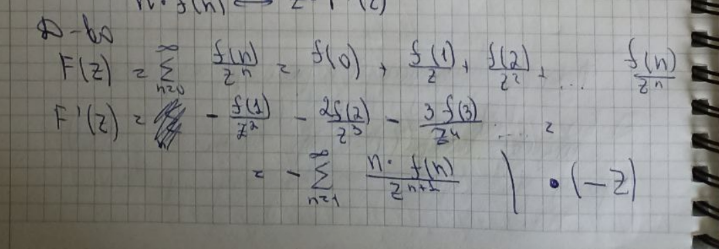 n·f(n) ⟷ -z·F'(z)
Д-во
F(z) = ∑_{n=0}^{∞} f(n)/z^n = f(0) + f(1)/z + f(2)/z² + ... f(n)/z^n
F'(z) = - f(1)/z² - 2f(2)/z³ - 3f(3)/z⁴ ... =
= - ∑_{n=1}^{∞} n·f(n)/z^{n+1} | ·(-z)